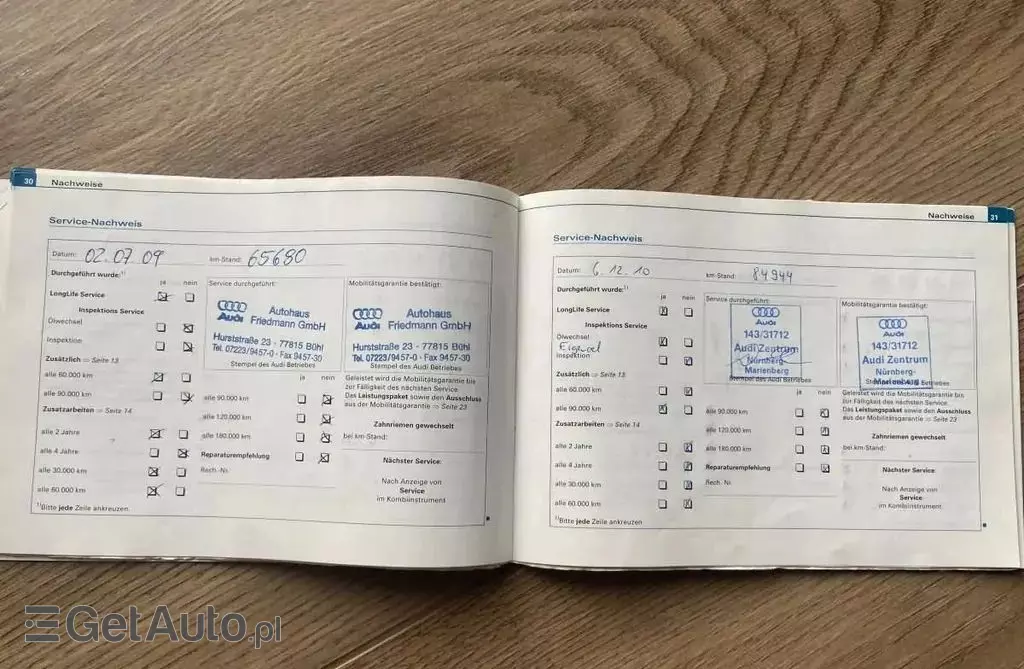 30 Nachweise
Service-Nachweis
Datum: 02.07.09 km-Stand: 65680
Durchgeführt wurde:¹⁾
ja nein
LongLife Service
Inspektions Service
Ölwechsel
Inspektion
Zusätzlich ⇒ Seite 13
alle 60.000 km
alle 90.000 km
Zusatzarbeiten ⇒ Seite 14
alle 2 Jahre
alle 4 Jahre
alle 30.000 km
alle 60.000 km
¹⁾Bitte jede Zeile ankreuzen
Service durchgeführt:
Audi
Autohaus
Friedmann GmbH
Hurststraße 23 - 77815 Bühl
Tel. 07223/9457-0 - Fax 9457-30
Stempel des Audi Betriebes
ja nein
alle 90.000 km
alle 120.000 km
alle 180.000 km
Reparaturempfehlung
Rech.-Nr.
Mobilitätsgarantie bestätigt:
Audi
Autohaus
Friedmann GmbH
Hurststraße 23 - 77815 Bühl
Tel. 07223/9457-0 - Fax 9457-30
Stempel des Audi Betriebes
Geleistet wird die Mobilitätsgarantie bis
zur Fälligkeit des nächsten Service.
Das Leistungspaket sowie den Ausschluss
aus der Mobilitätsgarantie ⇒ Seite 23
Zahnriemen gewechselt
bei km-Stand:
Nächster Service:
Nach Anzeige von
Service
im Kombiinstrument
Nachweise 31
Service-Nachweis
Datum: 6.12.10 km-Stand: 84944
Durchgeführt wurde:¹⁾
ja nein
LongLife Service
Inspektions Service
Ölwechsel
Inspektion
Zusätzlich ⇒ Seite 13
alle 60.000 km
alle 90.000 km
Zusatzarbeiten ⇒ Seite 14
alle 2 Jahre
alle 4 Jahre
alle 30.000 km
alle 60.000 km
¹⁾Bitte jede Zeile ankreuzen
Service durchgeführt:
Audi
143/31712
Audi Zentrum
Nürnberg-
Marienberg
Stempel des Audi Betriebes
ja nein
alle 90.000 km
alle 120.000 km
alle 180.000 km
Reparaturempfehlung
Rech.-Nr.
Mobilitätsgarantie bestätigt:
Audi
143/31712
Audi Zentrum
Nürnberg-
Marienberg
Stempel des Audi Betriebes
Geleistet wird die Mobilitätsgarantie bis
zur Fälligkeit des nächsten Service.
Das Leistungspaket sowie den Ausschluss
aus der Mobilitätsgarantie ⇒ Seite 23
Zahnriemen gewechselt
bei km-Stand:
Nächster Service:
Nach Anzeige von
Service
im Kombiinstrument
GetAuto.pl